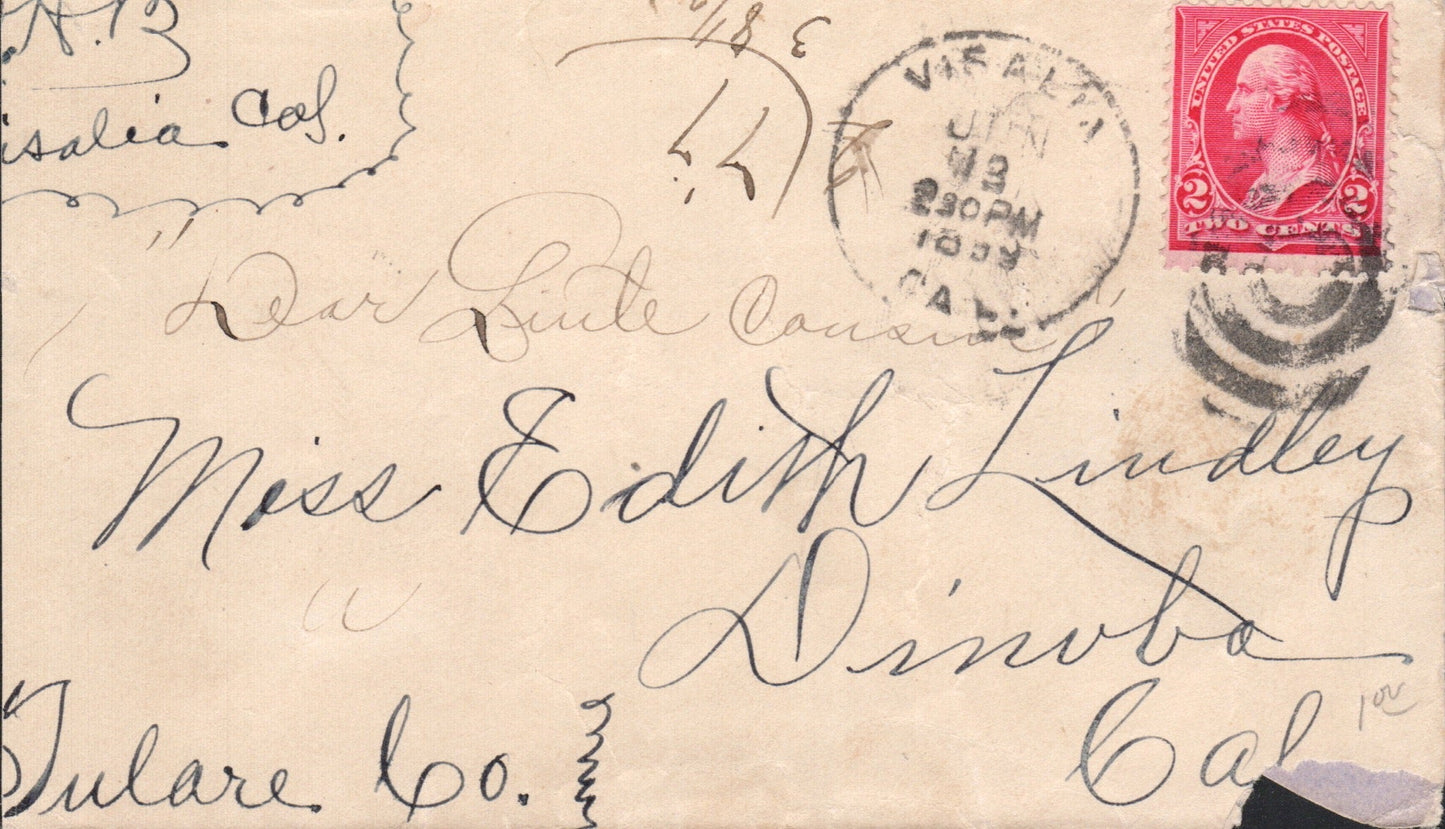 Cal.
77
VISALIA
JUN
230PM
CAL.
UNITED STATES POSTAGE
2 2
TWO CENTS
"Dear Little Cousin"
Miss Edith Lindley
Dinuba
Cal
Tulare Co.
100